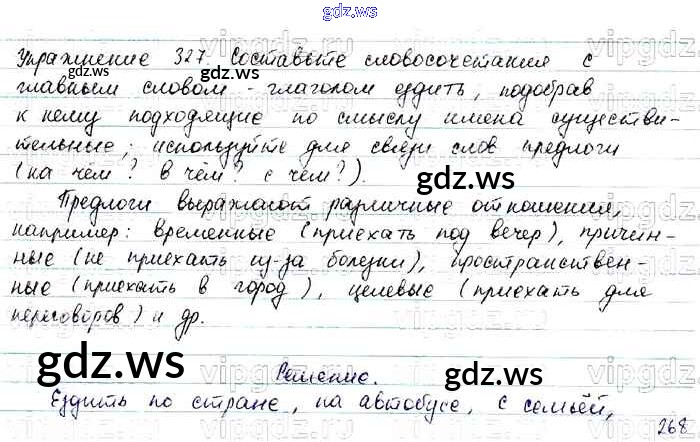 gdz.ws
Упражнение 327. Составьте словосочетания с
главным словом - глаголом ездить, подобрав
к нему подходящие по смыслу имена существи-
тельные; используйте для связи слов предлоги
(на чём? в чём? с чем?).
Предлоги выражают различные отношения,
например: временные (приехать под вечер), причин-
ные (не приехать из-за болезни), пространствен-
ные (приехать в город), целевые (приехать для
переговоров) и др.
Решение.
Ездить по стране, на автобусе, с семьёй,
268
gdz.ws
gdz.ws
gdz.ws
gdz.ws
gdz.ws
gdz.ws